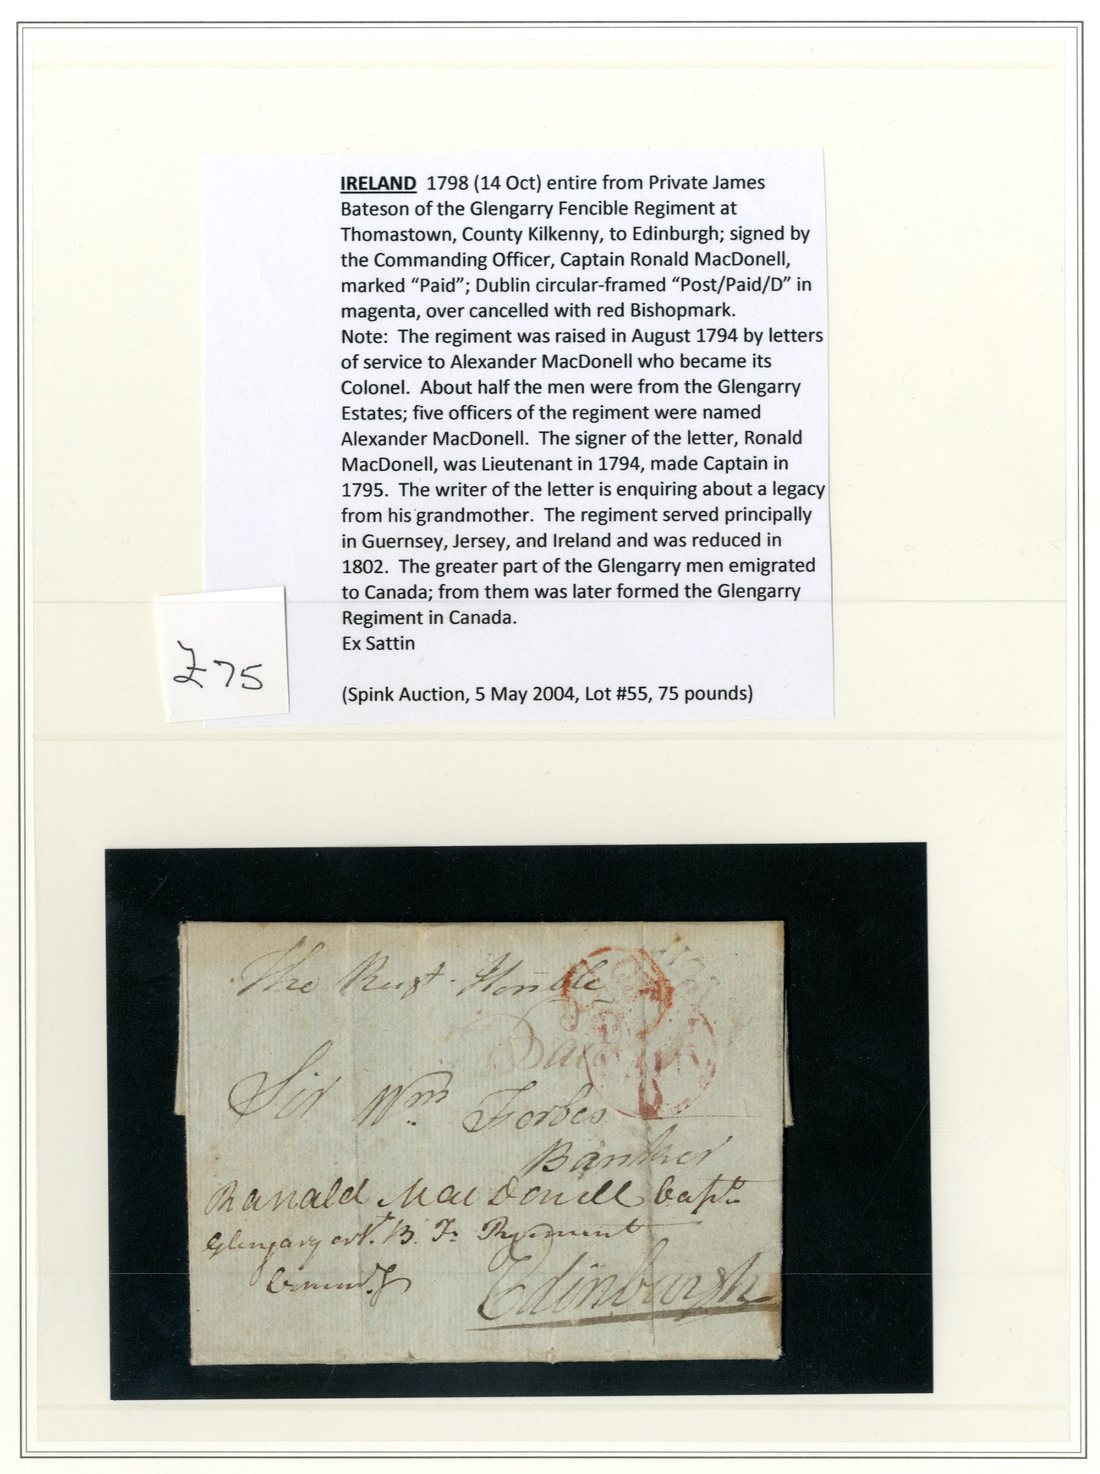 IRELAND 1798 (14 Oct) entire from Private James
Bateson of the Glengarry Fencible Regiment at
Thomastown, County Kilkenny, to Edinburgh; signed by
the Commanding Officer, Captain Ronald MacDonell,
marked “Paid”; Dublin circular-framed “Post/Paid/D” in
magenta, over cancelled with red Bishopmark.
Note: The regiment was raised in August 1794 by letters
of service to Alexander MacDonell who became its
Colonel. About half the men were from the Glengarry
Estates; five officers of the regiment were named
Alexander MacDonell. The signer of the letter, Ronald
MacDonell, was Lieutenant in 1794, made Captain in
1795. The writer of the letter is enquiring about a legacy
from his grandmother. The regiment served principally
in Guernsey, Jersey, and Ireland and was reduced in
1802. The greater part of the Glengarry men emigrated
to Canada; from them was later formed the Glengarry
Regiment in Canada.
Ex Sattin
(Spink Auction, 5 May 2004, Lot #55, 75 pounds)
£75
The Honble
Paid
Sir Wm Forbes
Banker
Ranald MacDonell Captn
B. Fe Regiment
Edinburgh